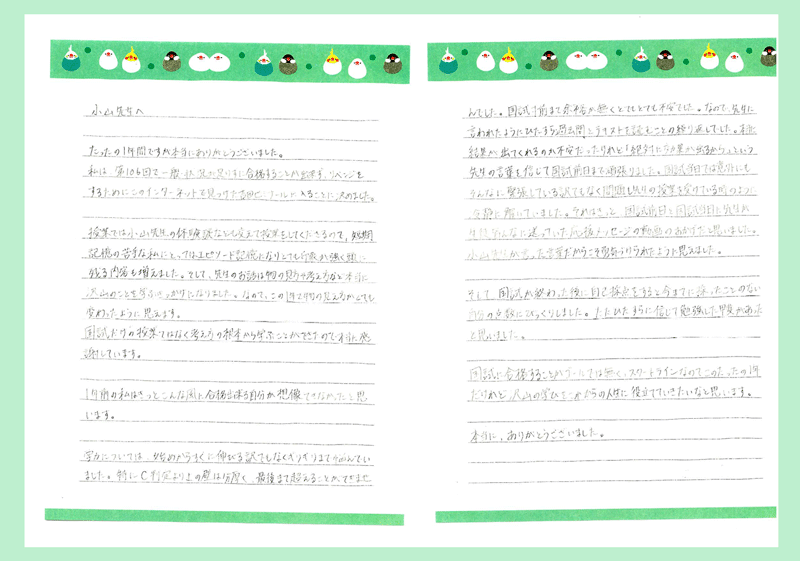 小山先生へ
たったの1年間ですが本当にありがとうございました。
私は、第106回で一般・状況が足りずに合格することが出来ず、リベンジを
するためにこのインターネットで見つけた に入ることに決めました。
授業では小山先生の体験談なども交えて授業をしてくださるので、短期
記憶の苦手な私にとってはエピソード記憶になりとても印象が強く頭に
残る内容も増えました。そして、先生のお話は物の見方や考え方など本当に
沢山のことを学ぶきっかけになりました。なので、この1年で物の見え方がとても
変わったように思えます。
国試だけの授業ではなく考え方の根本から学ぶことができたので本当に感
謝しています。
1年前の私はきっとこんな風に合格出来る自分が想像できなかったと思
います。
学力については、始めからすぐに伸びる訳でもなくギリギリまで悩んでい
ました。特にC判定より上の壁は分厚く、最後まで超えることができませ
んでした。国試直前まで余裕が無くとてもとても不安でした。なので、先生に
言われたようにひたすら過去問とテキストを読むことの繰り返しでした。本当に
結果が出てくれるのか不安だったけれど「絶対に効果が出るから」という
先生の言葉を信じて国試前日まで頑張りました。国試当日では意外にも
そんなに緊張している訳でもなく問題も先生の授業を受けている時のように
冷静に解いていました。それはきっと、国試前日と国試当日に先生が
生徒みんなに送っていた応援メッセージの動画のおかげだと思いました。
小山先生が言った言葉だからこそ に思えました。
そして、国試が終わった後に自己採点をすると今までに採ったことのない
自分の点数にびっくりしました。ただひたすらに信じて勉強した甲斐があった
と思いました。
国試に合格することがゴールでは無く、スタートラインなのでこのたったの1年
だけれど、沢山の学びをこれからの人生に役立てていきたいなと思います。
本当に、ありがとうございました。